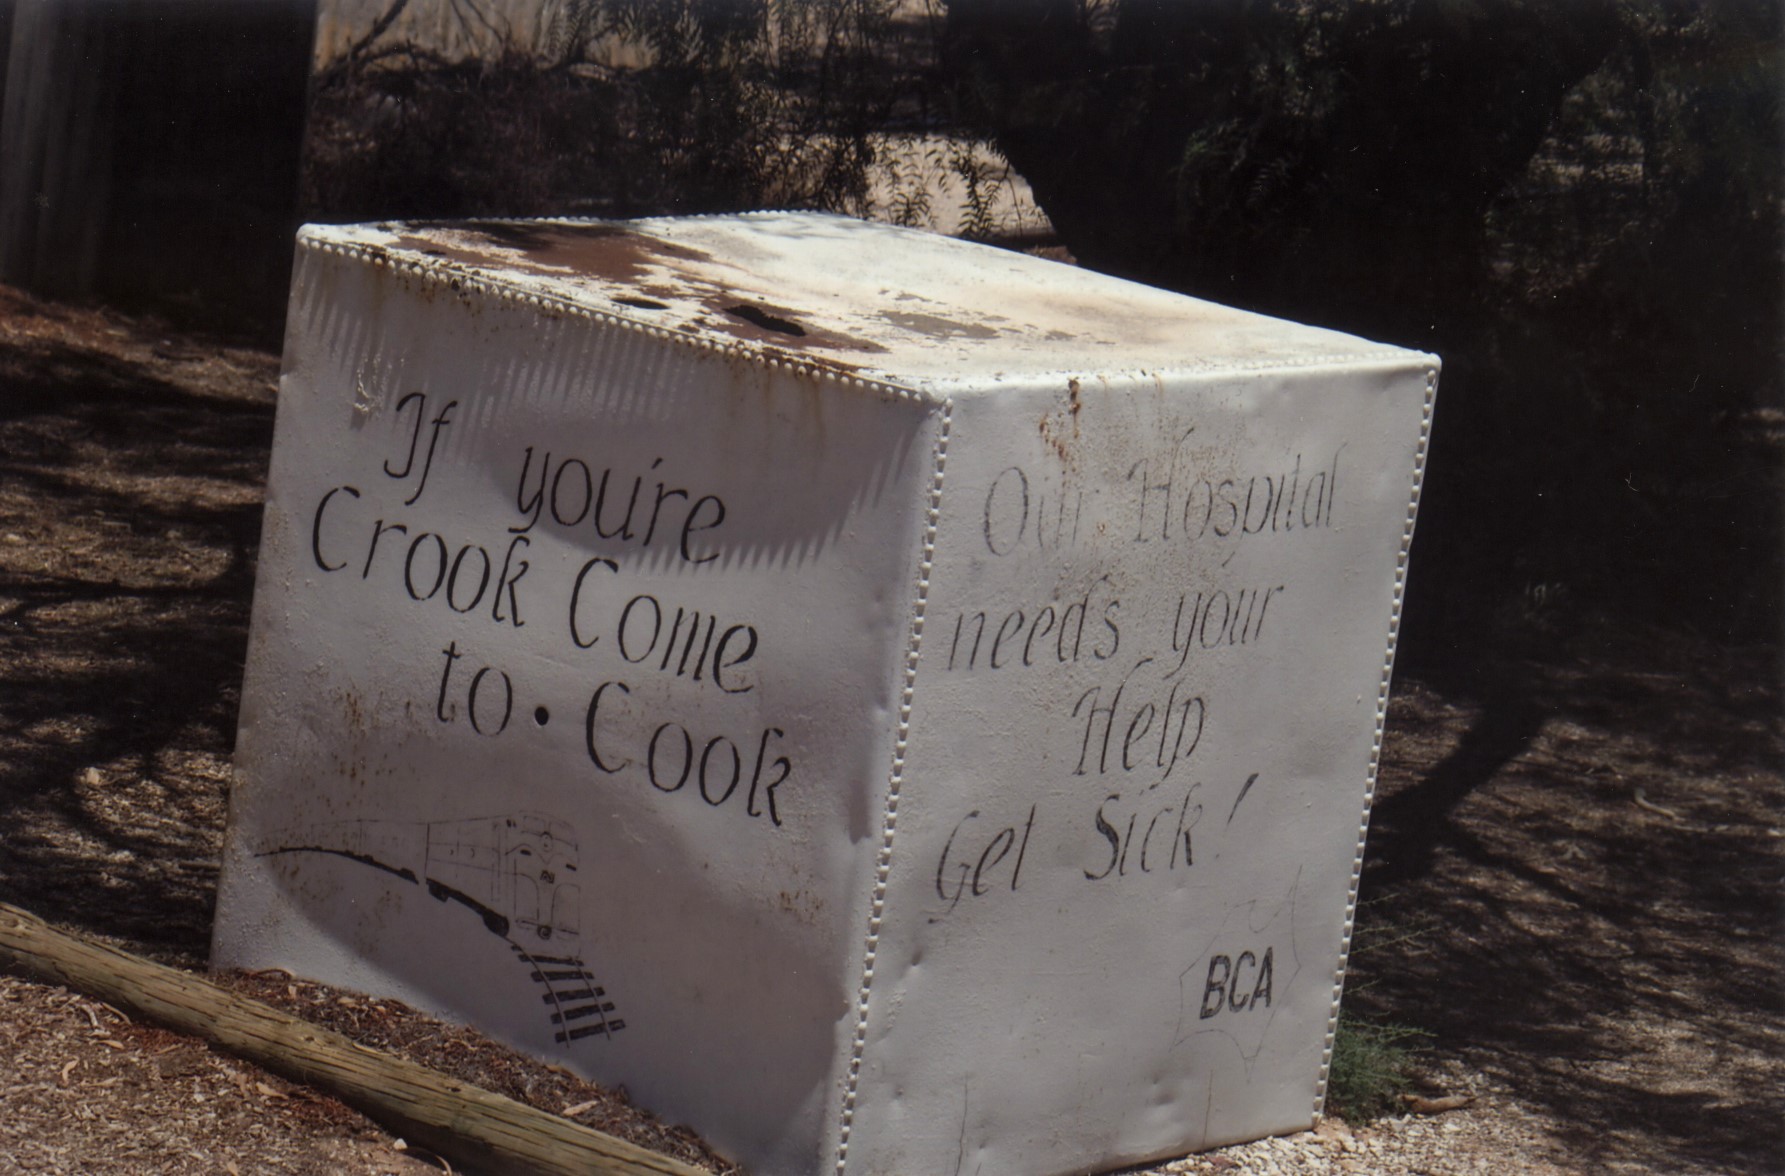 If you're
Crook Come
to • Cook
Our Hospital
needs your
Help
Get Sick!
BCA